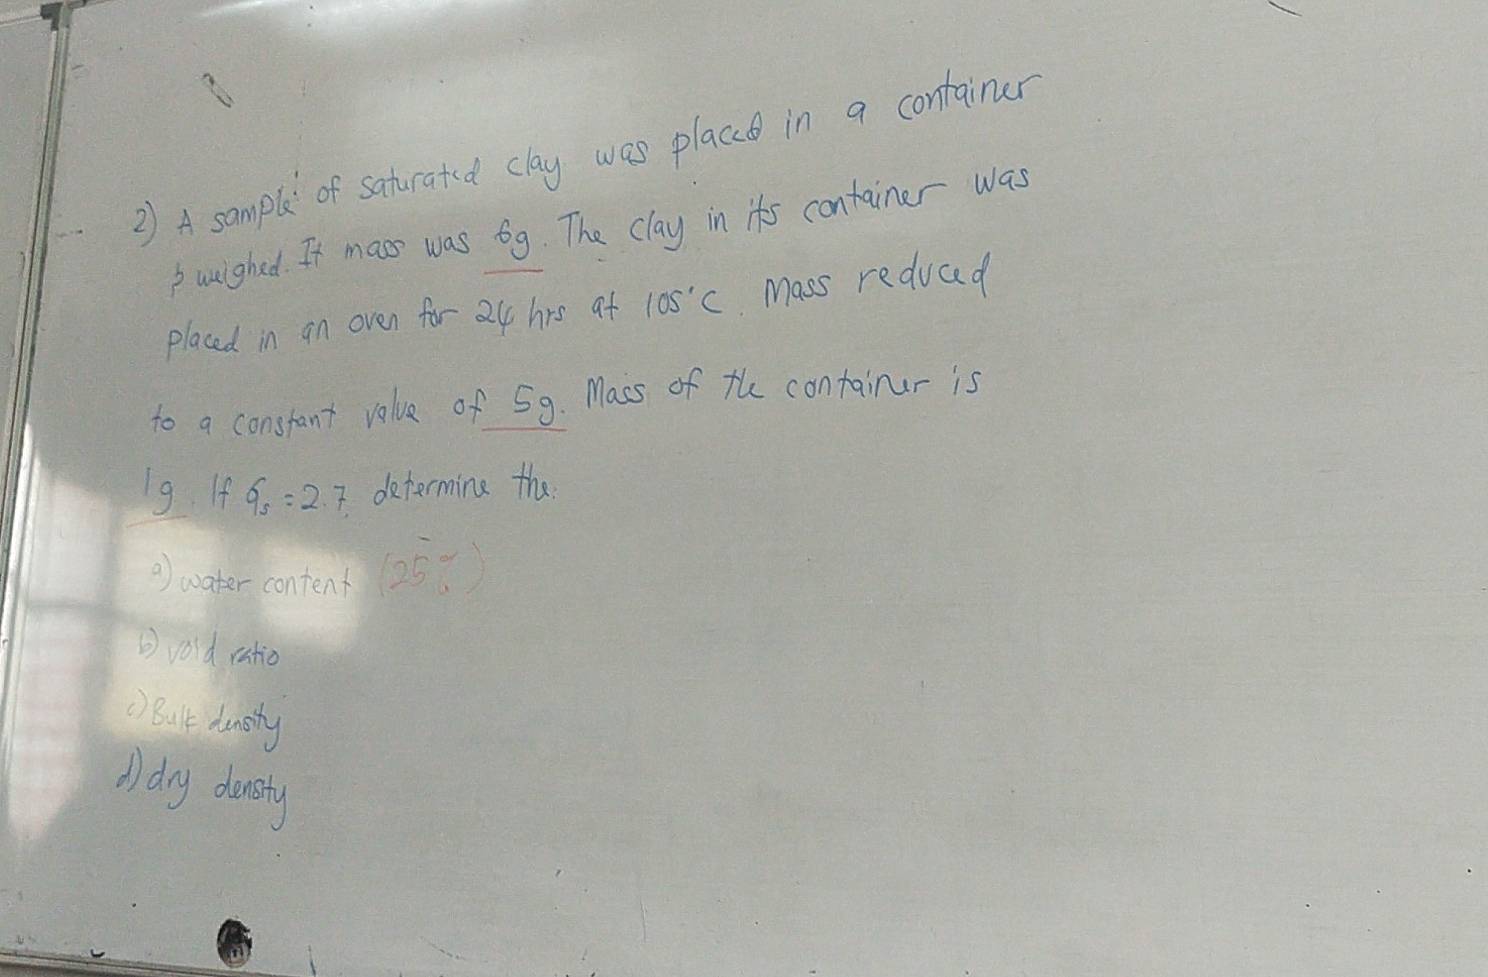 2) A sample of saturated clay was placed in a container
& weighed. It mass was 6g. The clay in its container was
placed in an oven for 24 hrs at 105°C. Mass reduced
to a constant value of 5g. Mass of the container is
1g. If Gs = 2.7, determine the:
a) water content (25%)
b) void ratio
c) Bulk density
d) dry density